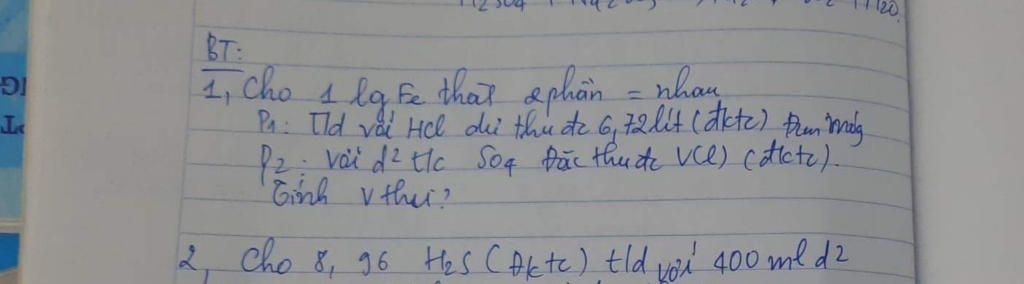 H2SO4 + Na2
H2O.
BT:
1, Cho 1 lg Fe that 2 phần = nhau
P1: T/d với HCl dư thu đc 6,72 lít (đktc) Đun nóng
P2: với d2 t/c SO4 Đặc thu đc V(l) (đktc).
Tính V thu?
2, Cho 8,96 H2S (Đktc) t/d với 400 ml d2